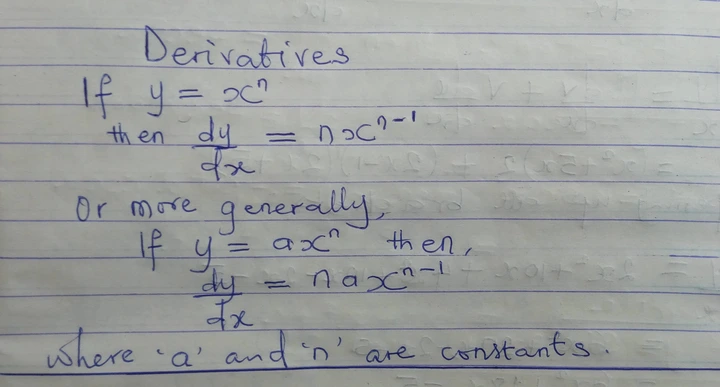 Derivatives
If y = xⁿ
then dy/dx = nxⁿ⁻¹
Or more generally,
If y = axⁿ then,
dy/dx = naxⁿ⁻¹
where 'a' and 'n' are constants.